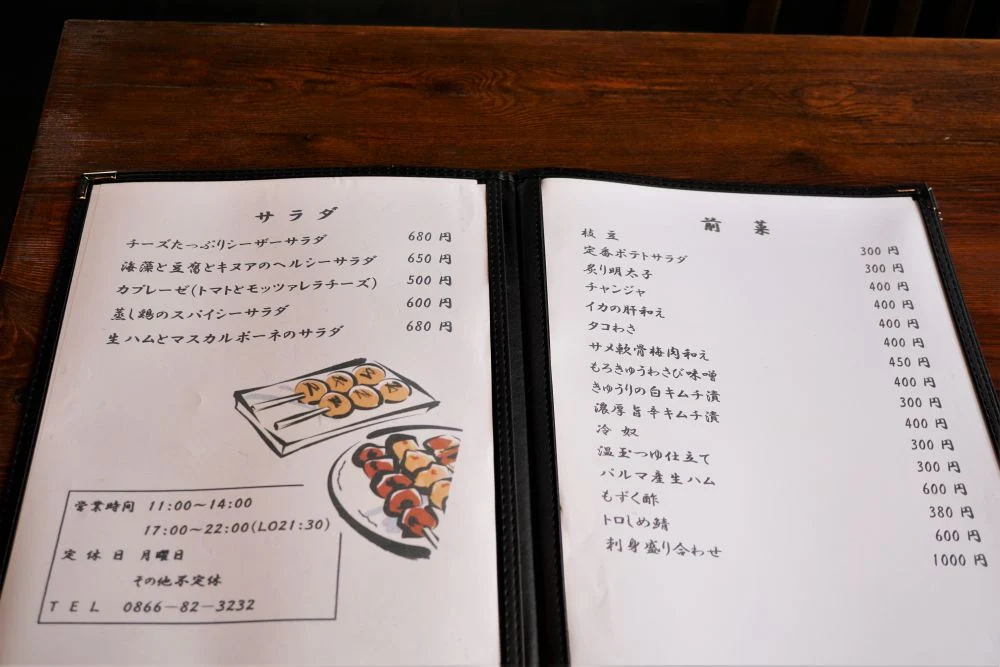 サラダ
チーズたっぷりシーザーサラダ 680円
海藻と豆腐とキヌアのヘルシーサラダ 650円
カプレーゼ(トマトとモッツァレラチーズ) 500円
蒸し鶏のスパイシーサラダ 600円
生ハムとマスカルポーネのサラダ 680円
営業時間 11:00〜14:00
17:00〜22:00(LO21:30)
定休日 月曜日
その他不定休
TEL 0866−82−3232
前菜
枝豆 300円
定番ポテトサラダ 300円
炙り明太子 400円
チャンジャ 400円
イカの肝和え 400円
タコわさ 400円
サメ軟骨梅肉和え 450円
もろきゅうわさび味噌 400円
きゅうりの白キムチ漬 300円
濃厚旨辛キムチ漬 400円
冷奴 300円
温玉つゆ仕立て 300円
パルマ産生ハム 600円
もずく酢 380円
トロしめ鯖 600円
刺身盛り合わせ 1000円